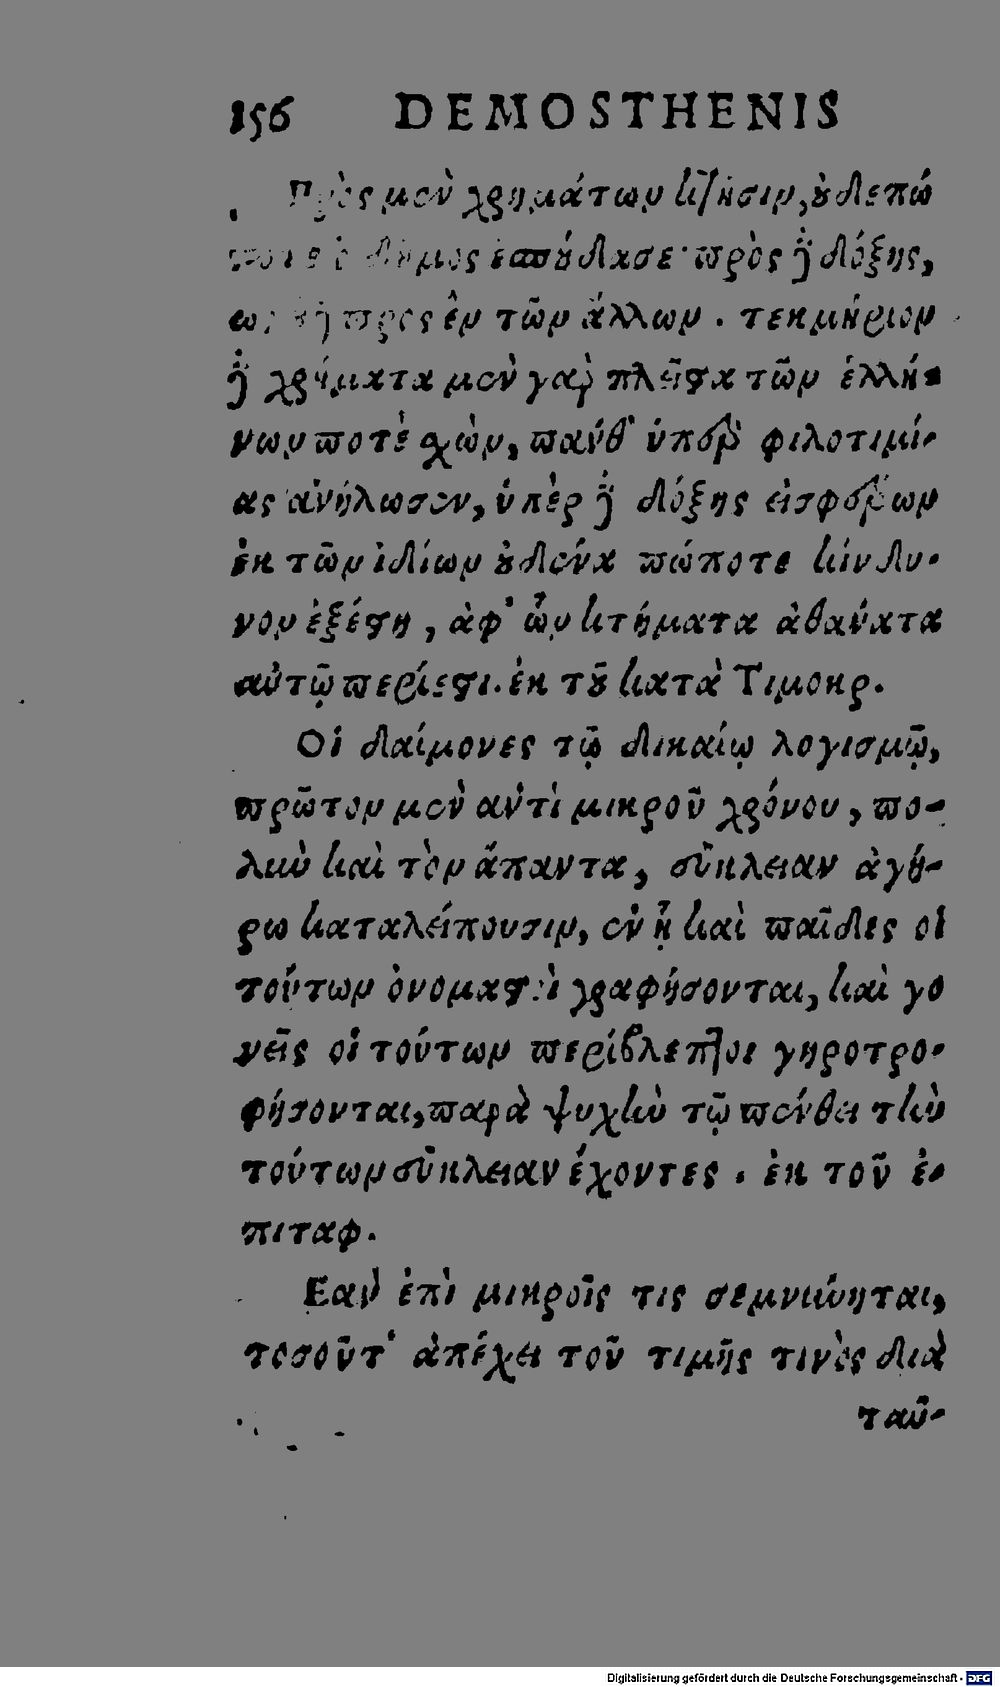 156 DEMOSTHENIS
Πρὸς μὲν χρημάτων κτῆσιν, οὐδεπώ
ποτε ὁ δῆμος ἐσπούδασε· πρὸς δὲ δόξης,
ὡς πρὸς ἓν τῶν ἄλλων. τεκμήριον
δὲ χρήματα μὲν γὰρ πλεῖστα τῶν ἑλλή-
νων ποτὲ χὼν, πανθ᾽ ὑπὲρ φιλοτιμί-
ας ἀνήλωσεν, ὑπὲρ δὲ δόξης εἰσφέρων
ἐκ τῶν ἰδίων οὐδένα πώποτε κίνδυ-
νον ἐξέστη, ἀφ᾽ ὧν κτήματα ἀθάνατα
αὐτῷ περίεστι. ἐκ τοῦ κατὰ Τιμοκρ.
Οἱ δαίμονες τῷ δικαίῳ λογισμῷ,
πρῶτον μὲν ἀντὶ μικροῦ χρόνου, πο-
λὺν καὶ τὸν ἅπαντα, εὔκλειαν ἀγή-
ρω καταλείπουσιν, ἐν ᾗ καὶ παῖδες οἱ
τούτων ὀνομαστοὶ γραφήσονται, καὶ γο
νεῖς οἱ τούτων περίβλεπτοι γηροτρο-
φήσονται, παρὰ ψυχὴν τῷ πένθει τὴν
τούτων εὔκλειαν ἔχοντες. ἐκ τοῦ ἐ-
πιταφ.
Εαν ἐπὶ μικροῖς τις σεμνύνηται,
τοσοῦτ᾽ ἀπέχει τοῦ τιμῆς τινὸς διὰ
ταῦ-
Digitalisierung gefördert durch die Deutsche Forschungsgemeinschaft - DFG